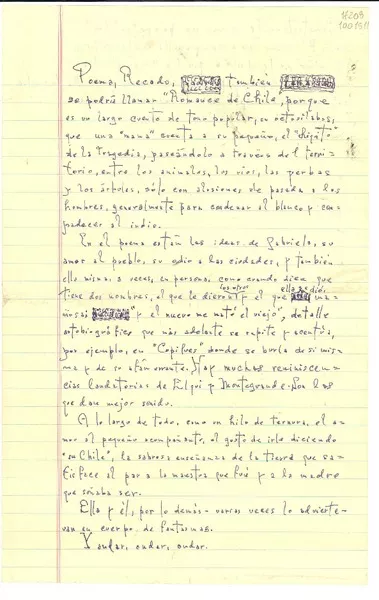 Poema, Recado, también
se podría llamar "Romance de Chile", porque
es un largo cuento de tono popular, en octosílabos,
que una "mama" cuenta a su pequeño, el "chiquito"
de la tragedia, paseándolo a través del terri-
torio, entre los animales, los ríos, las yerbas
y los árboles, sólo con alusiones de pasada a los
hombres, generalmente para condenar al blanco y com-
padecer al indio.
En el poema están las ideas de Gabriela, su
amor al pueblo, su odio a las ciudades, y también
ella misma, a veces, en persona, como cuando dice que
los otros ella se dió,
tiene dos nombres, el que le dieron y el que una
y "el nuevo me mató el viejo", detalle
autobiográfico que más adelante se repite y acentúa,
por ejemplo, en "Copihues" donde se burla de sí mis-
ma y de su afán errante. Hay muchas reminiscen-
cias laudatorias de Elqui y Montegrande. Por los
que dan mejor sonido.
A lo largo de todo, como un hilo de ternura, el a-
mor al pequeño acompañante, el gusto de irle diciendo
"su Chile", la sabrosa enseñanza de la tierra que sa-
tisface al par a la maestra que fué y a la madre
que soñaba ser.
Ella y él, por lo demás - varias veces lo advierte -
van en cuerpo de fantasmas.
Y andar, andar, andar.